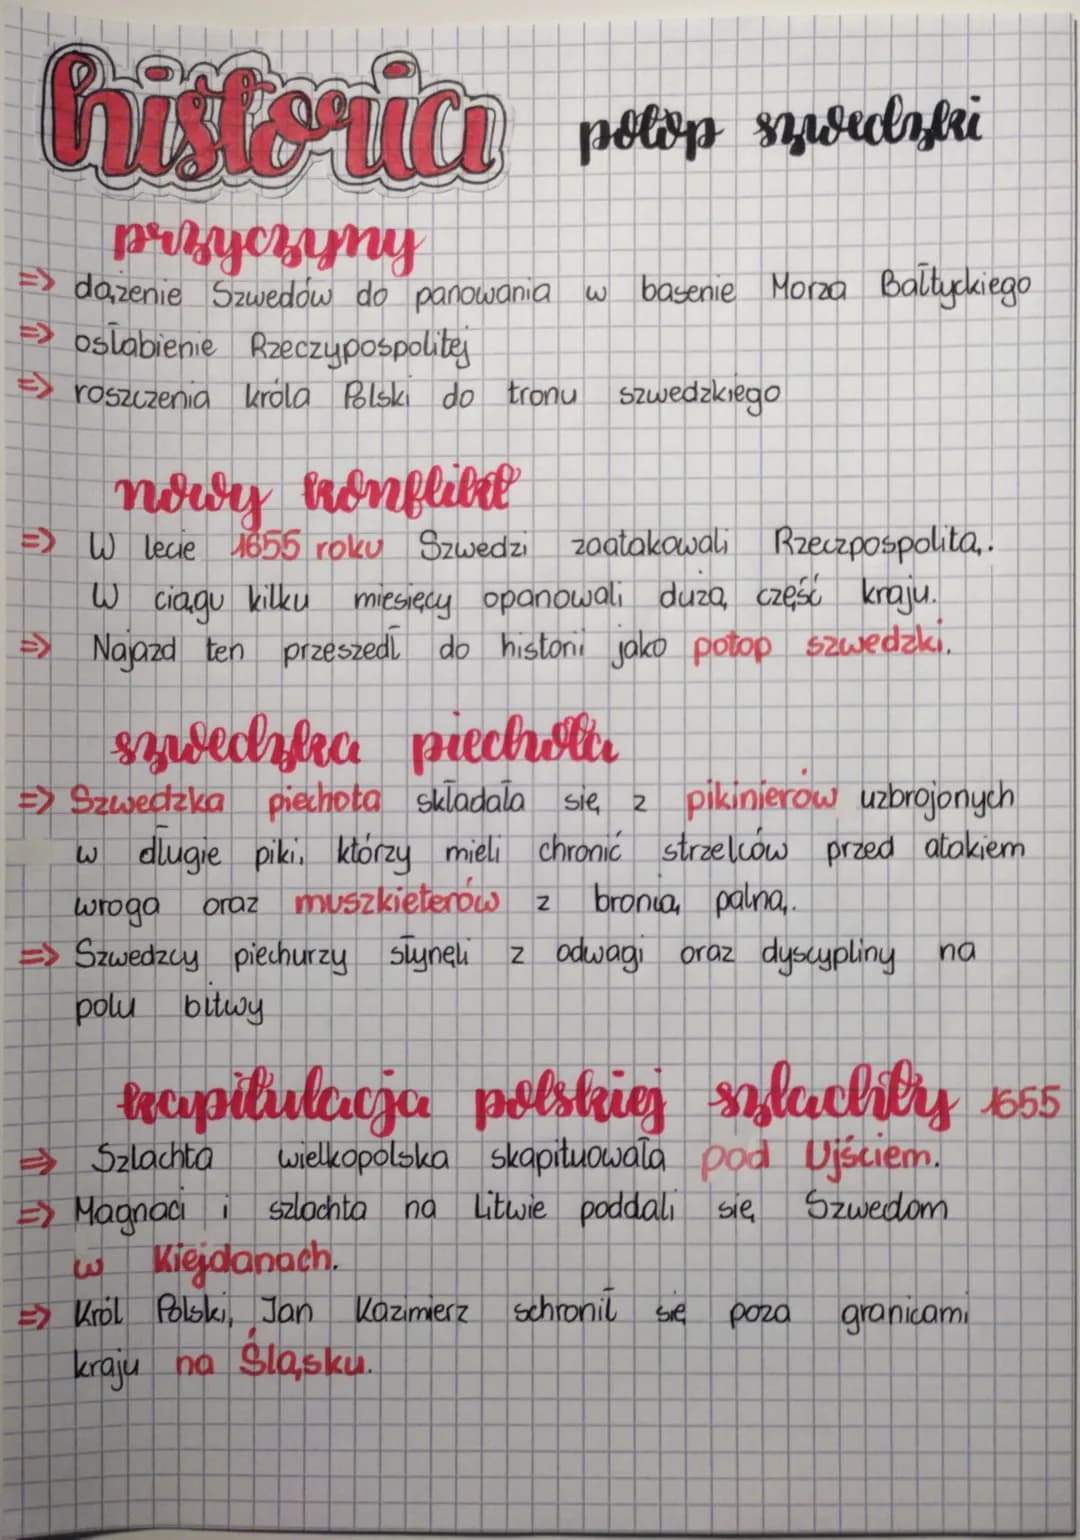 historia potop szwedzki
przyczyny
=> dążenie Szwedów do panowania w basenie Morza Bałtyckiego
=> osłabienie Rzeczypospolitej
=> roszczenia króla Polski do tronu szwedzkiego
nowy konflikt
=> W lecie 1655 roku Szwedzi zaatakowali Rzeczpospolitą.
W ciągu kilku miesięcy opanowali dużą część kraju.
=> Najazd ten przeszedł do histori jako potop szwedzki.
szwedzka piechota
=> Szwedzka piechota składała się z pikinierów uzbrojonych
w długie piki, którzy mieli chronić strzelców przed atakiem
wroga oraz muszkieterów z bronią palną.
=> Szwedzcy piechurzy słynęli z odwagi oraz dyscypliny na
polu bitwy
kapitulacja polskiej szlachty 1655
=> Szlachta wielkopolska skapituowała pod Ujściem.
=> Magnaci i szlachta na Litwie poddali się Szwedom
w Kiejdanach.
=> Król Polski, Jan Kazimierz schronił się poza granicami
kraju na Śląsku.